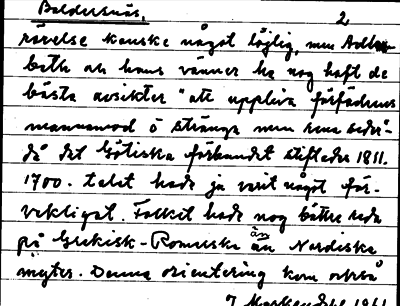 Baldersnäs. 2
rörelse kanske något löjlig, men Adler-
beth och hans vänner ha nog haft de
bästa avsikter "att uppliva förfädrens
mannamod o stränga men rena seder"-
då det Götiska förbundet stiftades 1811.
1700-talet hade ju varit något för-
vekligat. Folket hade nog bättre reda
på Grekisk-Romerska än än Nordiska
myter. Denna orientering kom också